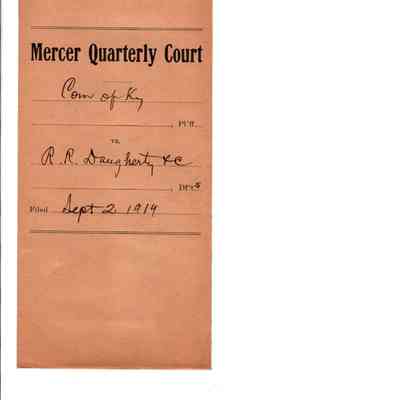 Mercer Quarterly Court
Com of Ky
, Pl'ff.
vs.
R. R. Daugherty &c
, Df'ts
Filed Sept 2 1919